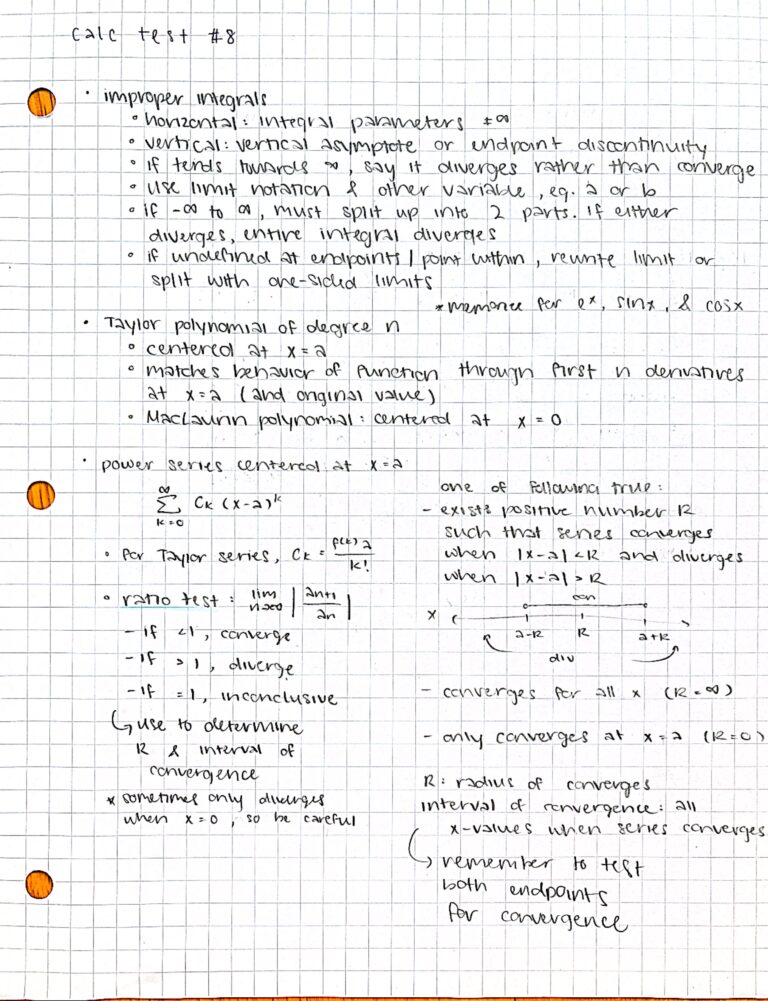 calc test #8
• improper integrals
• horizontal: integral parameters ±∞
• vertical: vertical asymptote or endpoint discontinuity
• if tends towards ∞, say it diverges rather than converge
• use limit notation & other variable, eg. a or b
• if -∞ to ∞, must split up into 2 parts. If either
diverges, entire integral diverges
• if undefined at endpoints / point within, rewrite limit or
split with one-sided limits
*memorize for eˣ, sinx, & cosx
• Taylor polynomial of degree n
• centered at x=a
• matches behavior of function through first n derivatives
at x=a (and original value)
• Maclaurin polynomial: centered at x=0
• power series centered at x=a
∞
Σ Cₖ (x-a)ᵏ
k=0
• for Taylor series, Cₖ = f(k) a / k!
• ratio test: lim n→∞ | an+1 / an |
- if <1, converge
- if >1, diverge
- if =1, inconclusive
↳ use to determine
R & interval of
convergence
* sometimes only diverges
when x=0, so be careful
one of following true:
- exists positive number R
such that series converges
when |x-a|<R and diverges
when |x-a|>R
con
x
a-R R a+R
div
- converges for all x (R=∞)
- only converges at x=a (R=0)
R: radius of converges
interval of convergence: all
x-values when series converges
↳ remember to test
both endpoints
for convergence